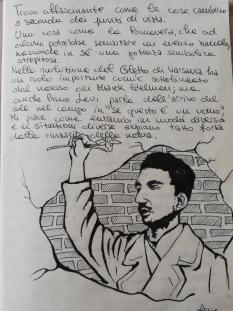 Trovo affascinante come le cose cambiano
a seconda dei punti di vista.
Una cosa come la Primavera, che ad
alcuni potrebbe sembrare un evento banale,
nasconde in sé una potenza simbolica
strepitosa.
Nella rivoluzione del Ghetto di Varsavia ha
un ruolo importante come sottolineato
dal narciso di Marek Edelman; ma
anche Primo Levi parla dell'arrivo del
sole nel campo in "Se questo è un uomo".
Mi piace come entrambi in modi diversi
e in situazioni diverse abbiano tratto forza
dalla rinascita della natura.